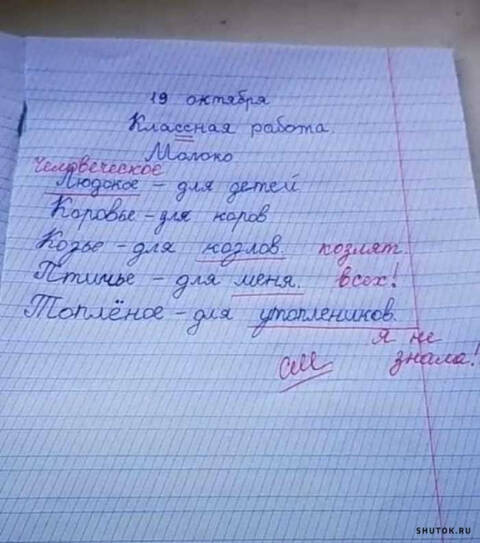 19 октября
Классная работа.
Молоко
Человеческое
Людское – для детей
Коровье – для коров
Козье – для козлов. козлят.
Птичье – для меня. всех!
Топлёное – для утоплеников.
я не
см знала!
SHUTOK.RU